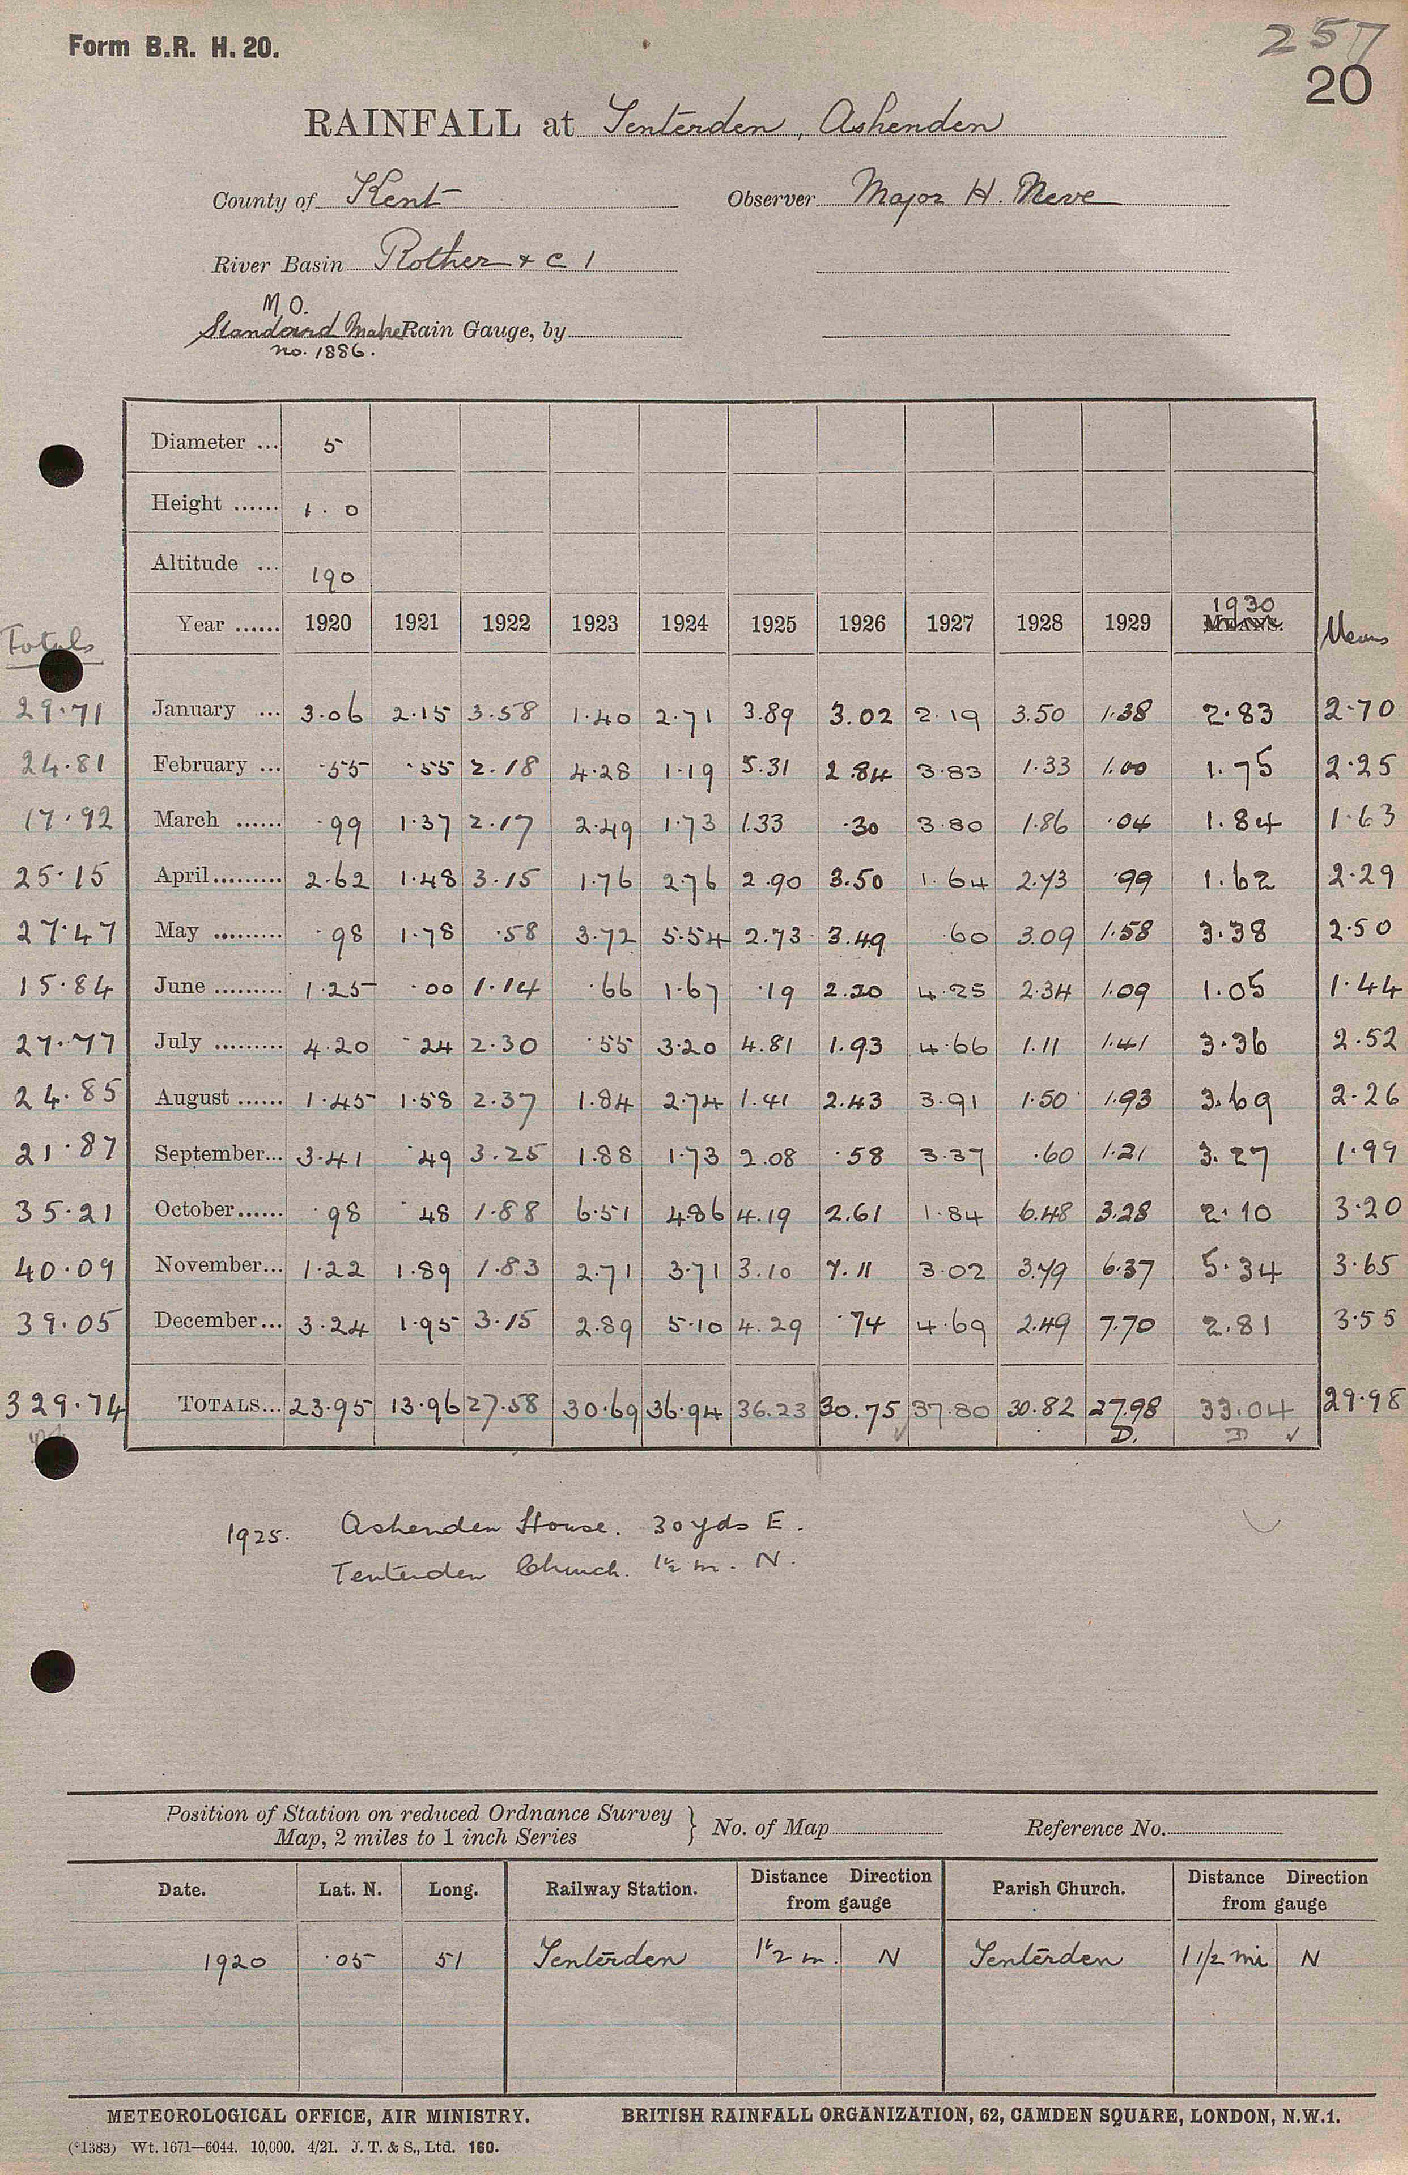 Form B.R. H. 20.
257
20
RAINFALL at Tenterden, Ashenden
County of Kent Observer Major H. Neve
River Basin Rother + C 1
M.O.
Standard Make Rain Gauge, by
no. 1886.
Diameter ... 5
Height ...... 1. 0
Altitude ... 190
Totals Year ...... 1920 1921 1922 1923 1924 1925 1926 1927 1928 1929 1930 MEANS. Means
29.71 January ... 3.06 2.15 3.58 1.40 2.71 3.89 3.02 2.19 3.50 1.38 2.83 2.70
24.81 February ... .55 .55 2.18 4.28 1.19 5.31 2.84 3.83 1.33 1.00 1.75 2.25
17.92 March ...... .99 1.37 2.17 2.49 1.73 1.33 .30 3.80 1.86 .04 1.84 1.63
25.15 April......... 2.62 1.48 3.15 1.76 2.76 2.90 3.50 1.64 2.73 .99 1.62 2.29
27.47 May ......... .98 1.78 .58 3.72 5.54 2.73 3.49 .60 3.09 1.58 3.38 2.50
15.84 June ......... 1.25 .00 1.14 .66 1.67 .19 2.20 4.25 2.34 1.09 1.05 1.44
27.77 July ......... 4.20 .24 2.30 .55 3.20 4.81 1.93 4.66 1.11 1.41 3.36 2.52
24.85 August ...... 1.45 1.58 2.37 1.84 2.74 1.41 2.43 3.91 1.50 1.93 3.69 2.26
21.87 September... 3.41 .49 3.25 1.88 1.73 2.08 .58 3.37 .60 1.21 3.27 1.99
35.21 October...... .98 .48 1.88 6.51 4.86 4.19 2.61 1.84 6.48 3.28 2.10 3.20
40.09 November... 1.22 1.89 1.83 2.71 3.71 3.10 7.11 3.02 3.79 6.37 5.34 3.65
39.05 December... 3.24 1.95 3.15 2.89 5.10 4.29 .74 4.69 2.49 7.70 2.81 3.55
329.74 TOTALS... 23.95 13.96 27.58 30.69 36.94 36.23 30.75 37.80 30.82 27.98 33.04 29.98
D. D
1925. Ashenden House. 30 yds E.
Tenterden Church. 1½ m. N.
Position of Station on reduced Ordnance Survey
Map, 2 miles to 1 inch Series } No. of Map Reference No.
Date. Lat. N. Long. Railway Station. Distance Direction from gauge Parish Church. Distance Direction from gauge
1920 .05 51 Tenterden 1½ m. N Tenterden 1 1/2 mi N
METEOROLOGICAL OFFICE, AIR MINISTRY. BRITISH RAINFALL ORGANIZATION, 62, CAMDEN SQUARE, LONDON, N.W.1.
(*1383) Wt. 1671—6044. 10,000. 4/21. J. T. & S., Ltd. 160.